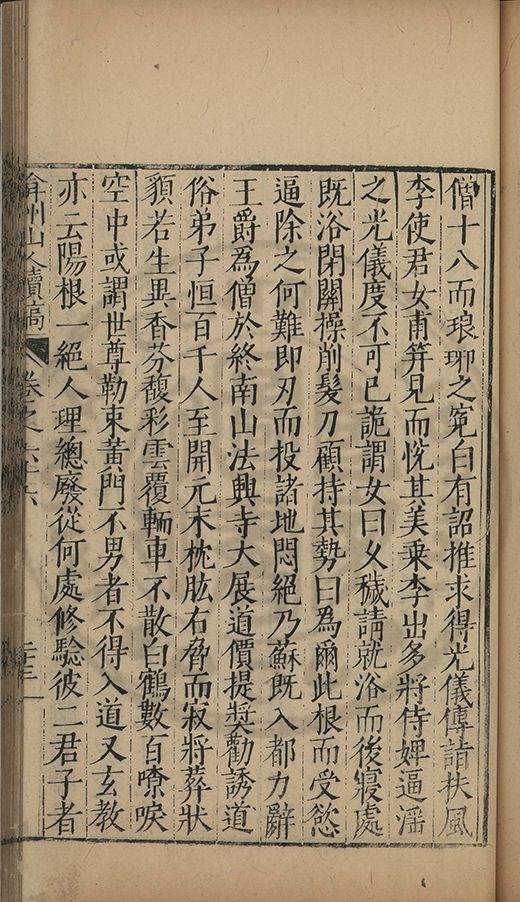 僧十八而琅琊之冤白有詔推求得光儀傳詣扶風
李使君女甫笄見而悅其美乗李出多將侍婢逼淫
之光儀度不可已詭謂女曰乆穢請就浴而後寢處
既浴閉關操削髮刀顧持其勢曰為爾此根而受慾
逼除之何難即刃而投諸地悶絕乃蘇既入都力辭
王爵為僧於終南山法興寺大展道價提奬勸誘道
俗弟子恒百千人至開元末枕肱右脅而寂將葬狀
貌若生異香芬馥彩雲覆輀車不散白鶴數百嘹唳
空中或謂世尊勒束黃門不男者不得入道又玄教
亦云陽根一絕人理總廢從何處修驗彼二君子者
弇州山人續稿 卷之六十六 二十三